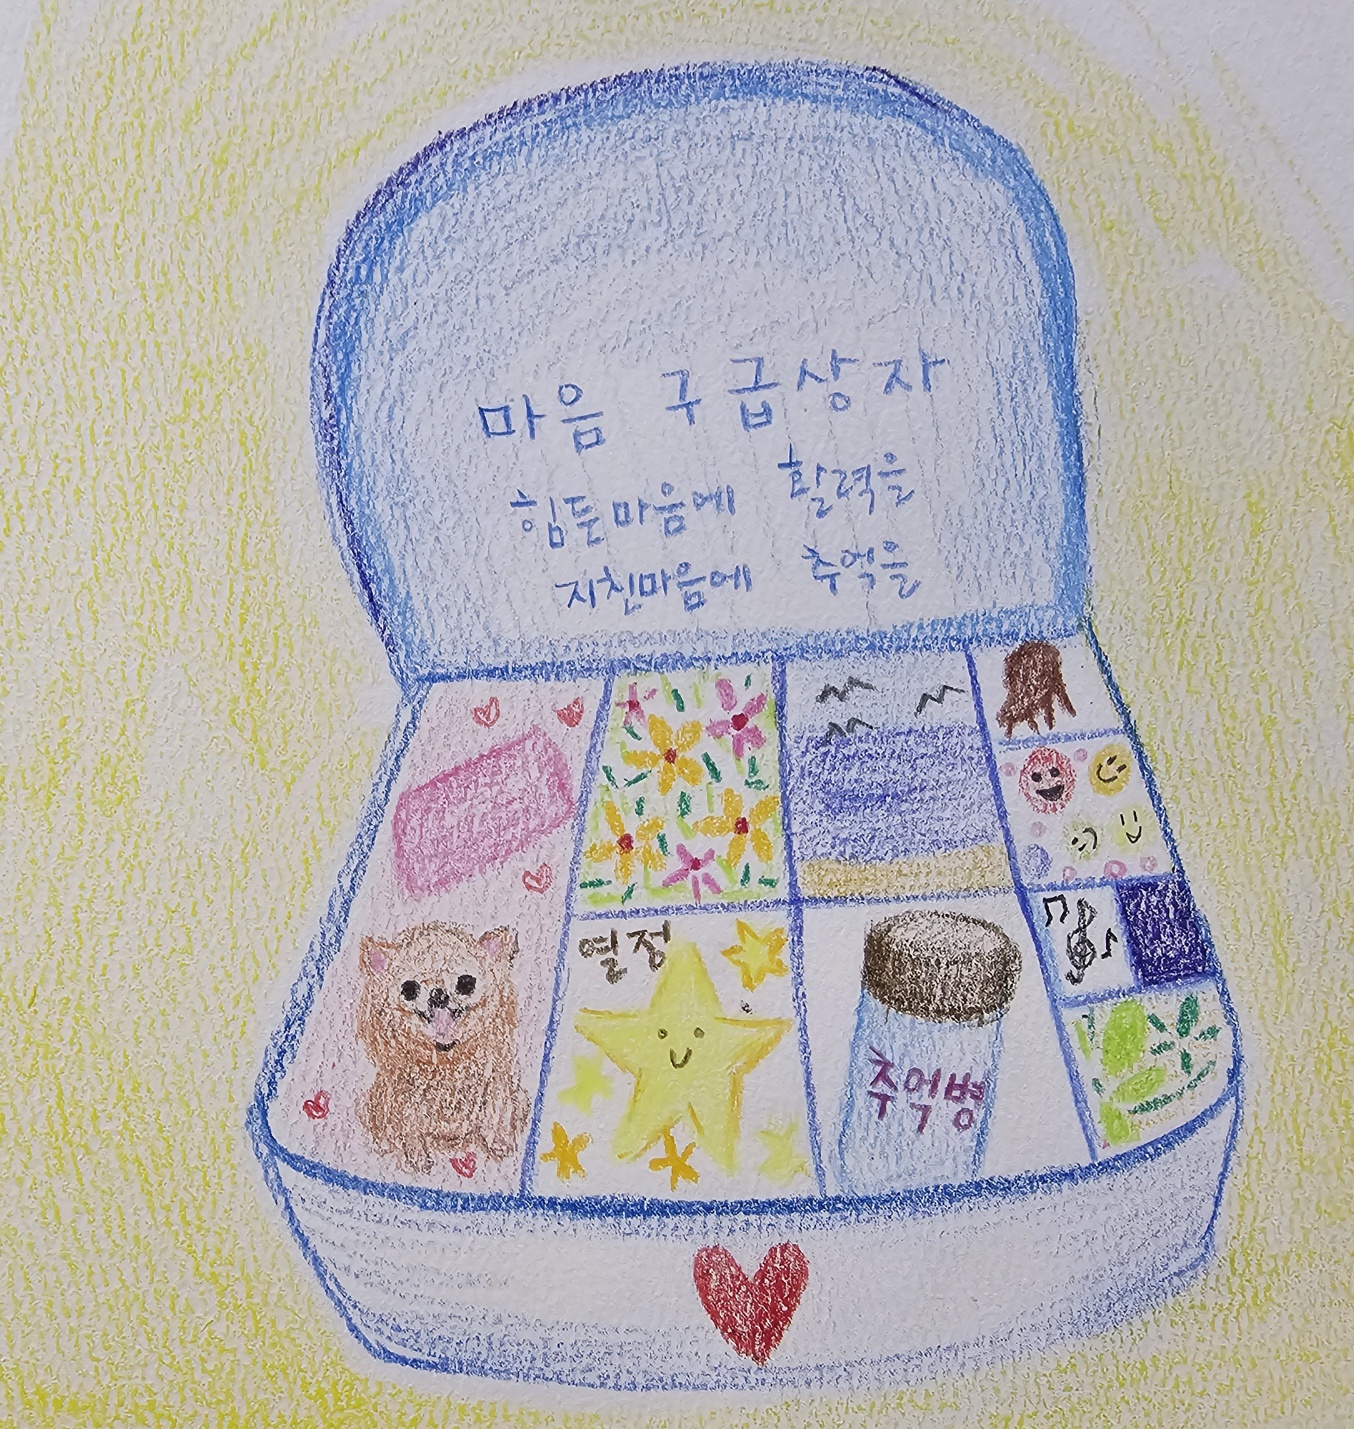 마음 구급상자
힘든마음에 활력을
지친마음에 추억을
열정
추억병